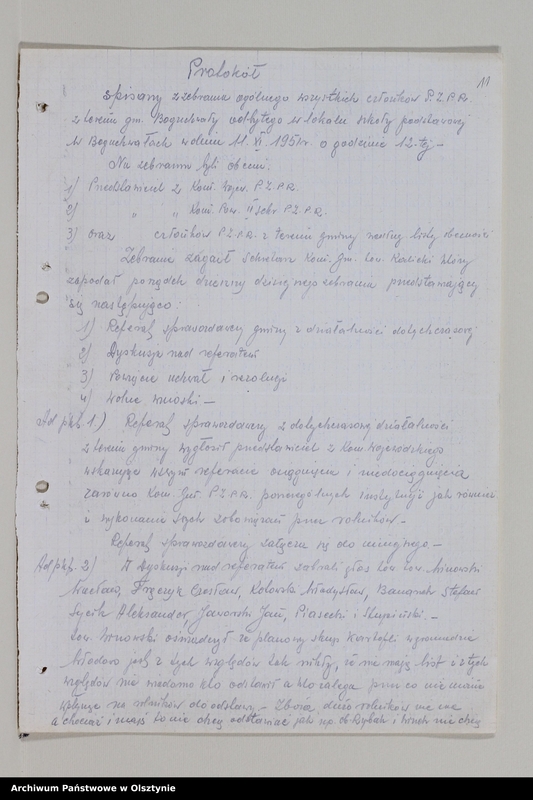 11
Protokół
spisany z zebrania ogólnego wszystkich członków P.Z.P.R.
z terenu gm. Boguchwały odbytego w lokalu szkoły podstawowej
w Boguchwałach w dniu 11. XI. 1951r. o godzinie 12-tej —
Na zebraniu byli obecni:
1) Przedstawiciel z Kom. Wojew. P.Z.P.R.
2) " " Kom. Pow. II sekr. P.Z.P.R.
3) oraz członków P.Z.P.R. z terenu gminy według listy obecności
Zebranie zagaił sekretarz Kom. Gm. tow. który
zapodał porządek dzienny dzisiejszego zebrania przedstawiający
się następująco:
1) Referat sprawozdawczy gminy z działalności dotychczasowej
2) Dyskusja nad referatem
3) Powzięcie uchwał i rezolucji
4) Wolne wnioski —
Ad pkt. 1.) Referat sprawozdawczy z dotychczasowej działalności
z terenu gminy wygłosił przedstawiciel z Kom. Wojewódzkiego
wskazując w swym referacie osiągnięcia i niedociągnięcia
zarówno Kom. Gm. P.Z.P.R. poszczególnych instytucji jak również
i wykonanie swych zobowiązań przez rolników. —
Referat sprawozdawczy załącza się do niniejszego. —
Ad pkt. 2) W dyskusji nad referatem zabrali głos tow. tow.
Wacław, Czesław, Władysław, Stefan
Aleksander, Jaworski Jan, Piasecki i —
tow. oświadczył że planowy skup kartofli w gromadzie
jest z tych względów tak nikły, że nie mają list i z tych
względów nie wiadomo kto odstawił a kto zalega przez co nie może
wpłynąć na rolników do odstawy. — Zboża dużo rolników nie ma
a chociaż i mają to nie chcą odstawiać jak np. ob. i nie chcą